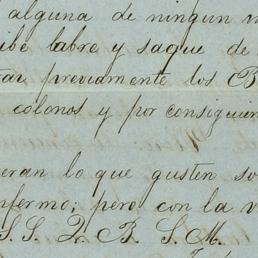 alguna de ningun
labre y saque de
previamente los B
colonos y por consiguien
eran lo que gusten so
nfermo; pero con la v
S. S. Q. B. S. M.